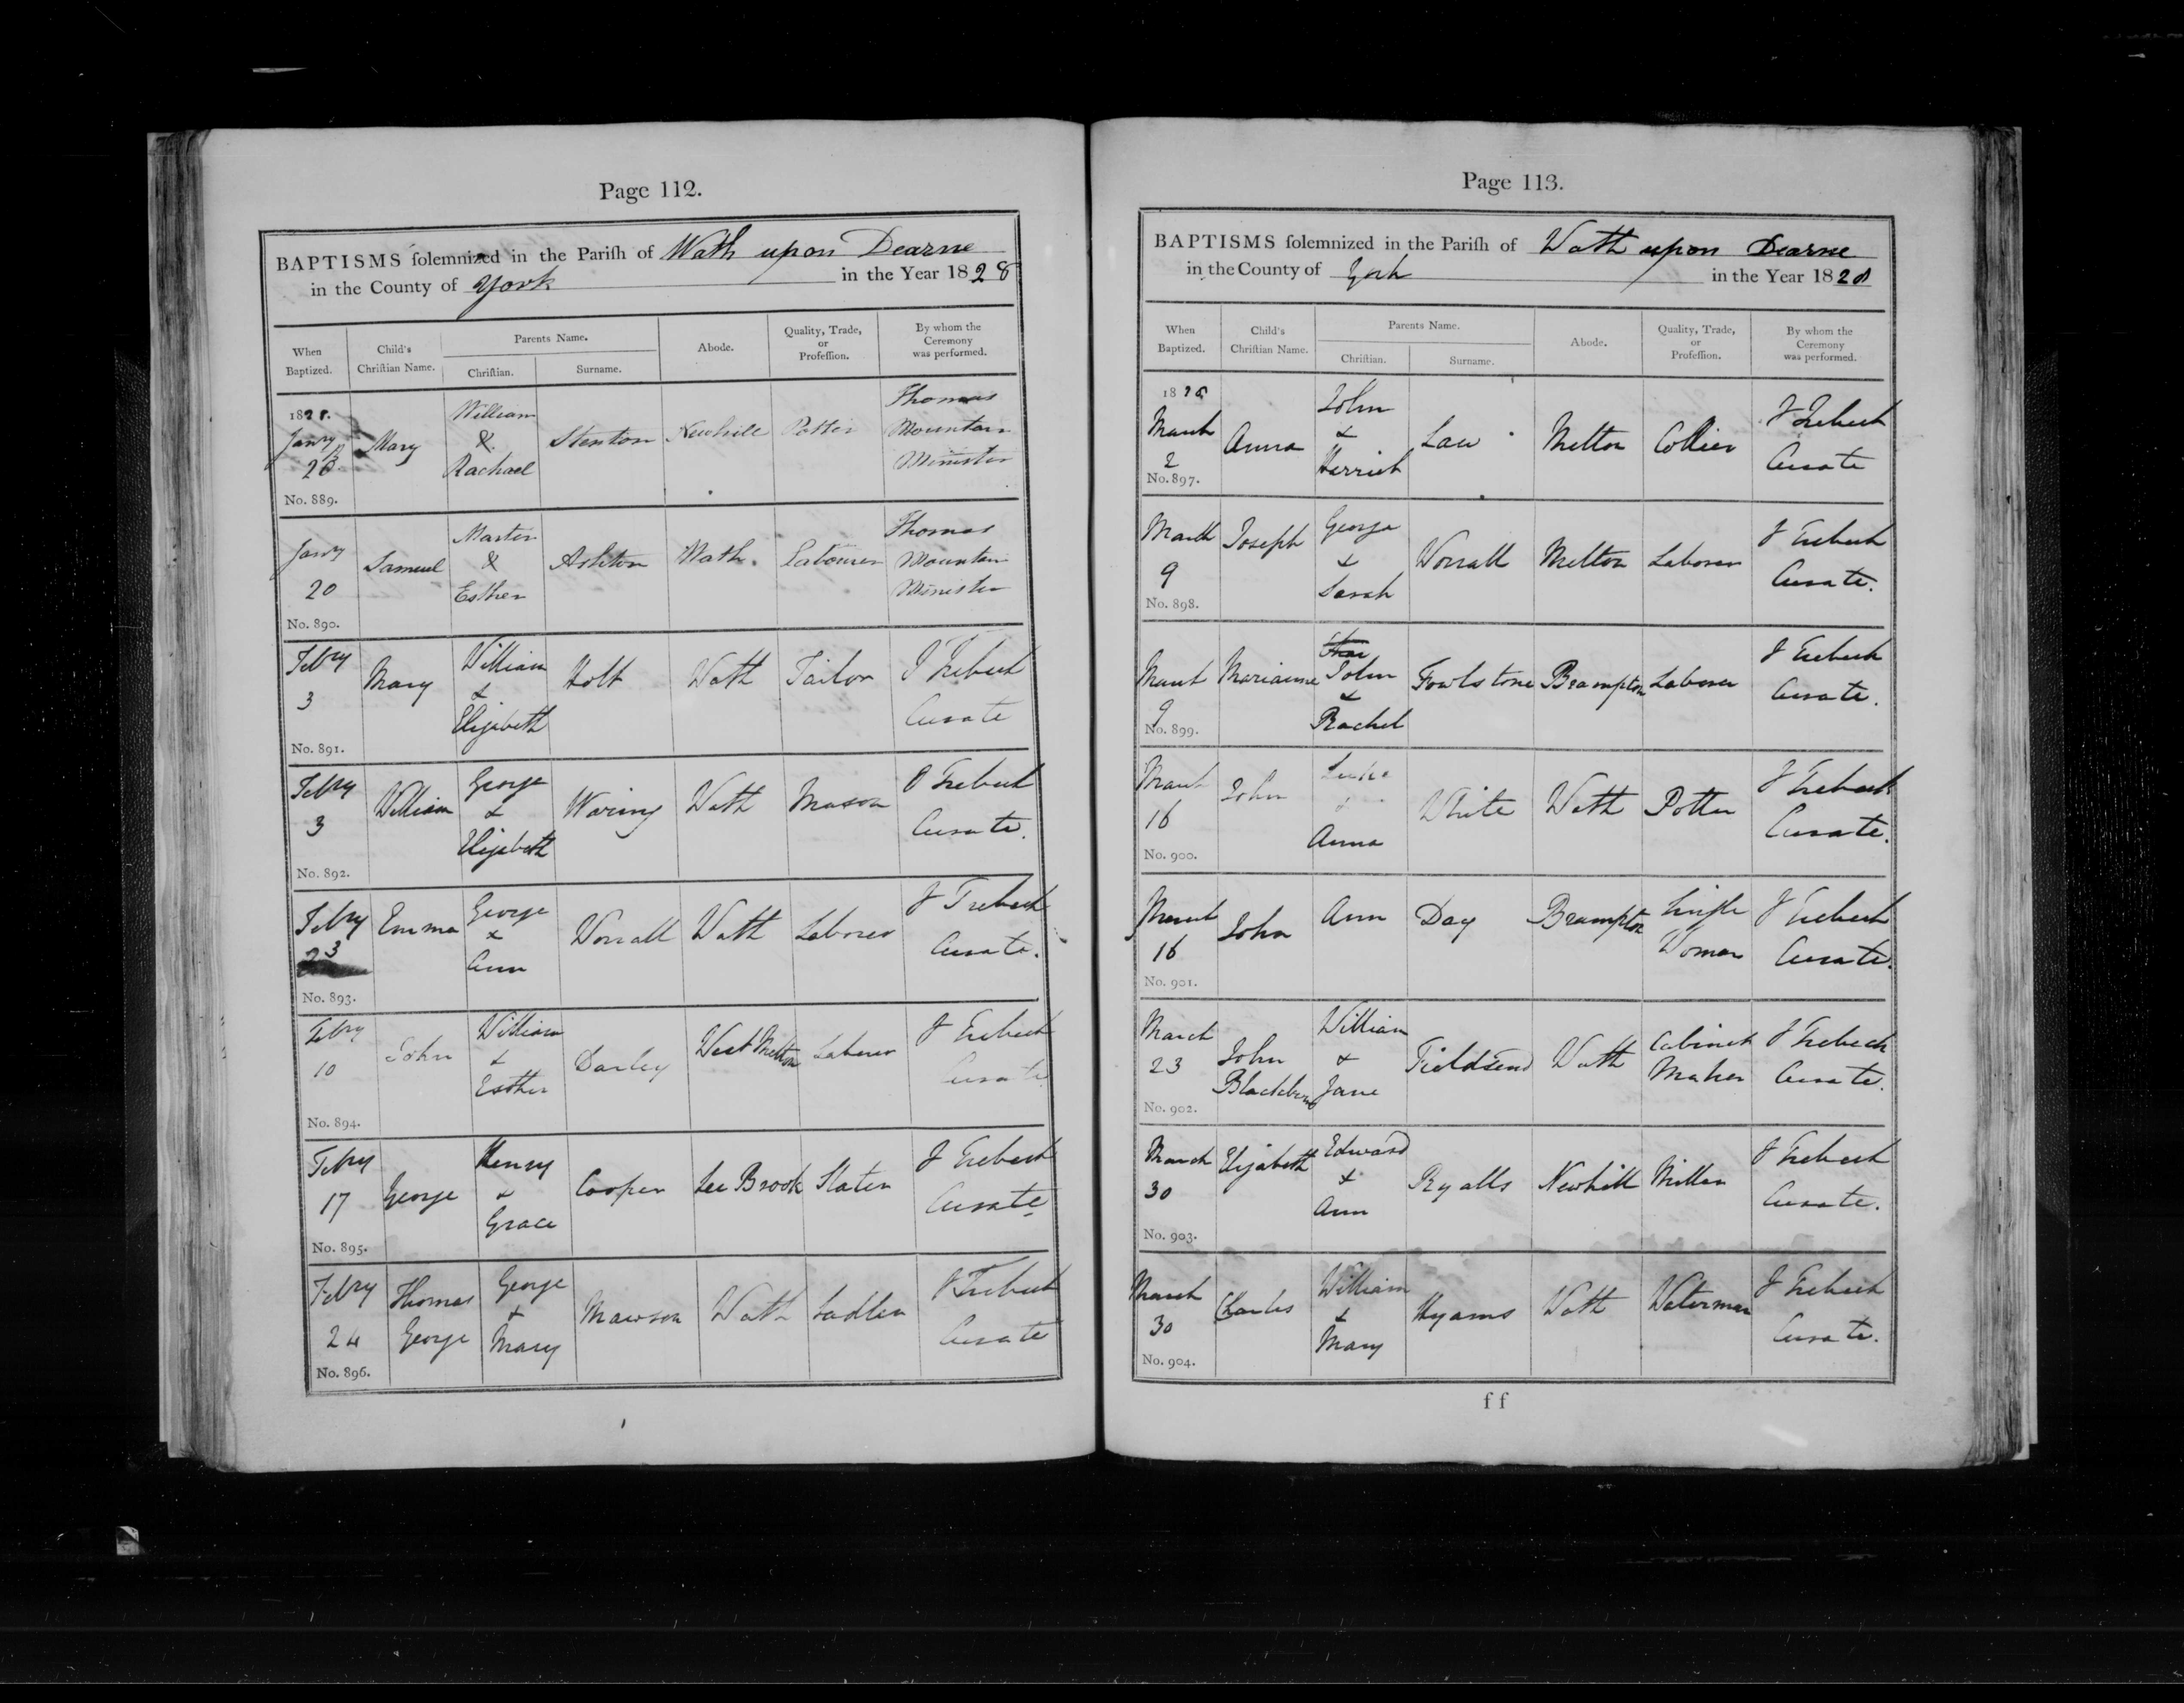 Page 112.
BAPTISMS ſolemnized in the Pariſh of Wath upon Dearne
in the County of York in the Year 1828
When Baptized. Child's Chriſtian Name. Parents Name. Chriſtian. Surname. Abode. Quality, Trade, or Profeſſion. By whom the Ceremony was performed.
1828. Janry No. 889. Mary William & Rachael Stenton Newhill Potter Thomas Mountain Minister
Janry 20 No. 890. Samuel Martin & Esther Ashton Wath. Labourer Thomas Mountain Minister
Febry 3 No. 891. Mary William & Elizabeth Holt Wath Tailor J Trebeck Curate
Febry 3 No. 892. William George & Elizabeth Waring Wath Mason J Trebeck Curate.
Febry 3 No. 893. Emma George & Ann Worrall Wath Laborer J Trebeck Curate.
Febry 10 No. 894. John William & Esther Darley West Melton Laborer J Trebeck Curate
Febry 17 No. 895. George Henry & Grace Cooper Lee Brook Slater J Trebeck Curate
Febry 24 No. 896. Thomas George George & Mary Mawson Wath Sadler J Trebeck Curate
Page 113.
BAPTISMS ſolemnized in the Pariſh of Wath upon Dearne
in the County of York in the Year 1828
When Baptized. Child's Chriſtian Name. Parents Name. Chriſtian. Surname. Abode. Quality, Trade, or Profeſſion. By whom the Ceremony was performed.
1828 March 2 No. 897. Anna John & Harriet Law Melton Collier J Trebeck Curate
March 9 No. 898. Joseph George & Sarah Worrall Melton Laborer J Trebeck Curate.
March 9 No. 899. Marianne John & Rachel Fowlstone Brampton Laborer J Trebeck Curate.
March 16 No. 900. John Luke & Anna White Wath Potter J Trebeck Curate.
March 16 No. 901. John Ann Day Brampton Single Woman J Trebeck Curate.
March 23 No. 902. John Blackburn William & Jane Fieldsend Wath Cabinet Maker J Trebeck Curate.
March 30 No. 903. Elizabeth Edward & Ann Ryalls Newhill Miller J Trebeck Curate.
March 30 No. 904. Charles William & Mary Hyams Wath Waterman J Trebeck Curate.
f f